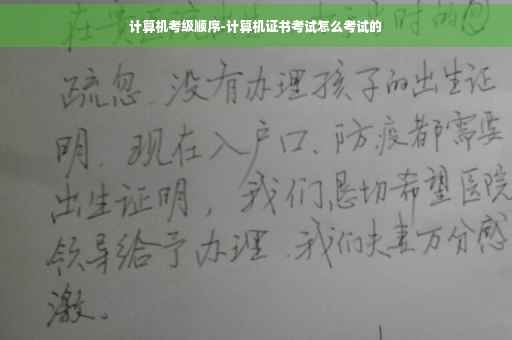 计算机考级顺序-计算机证书考试怎么考试的
在贵 时的
疏忽.没有办理孩子的出生证
明.现在入户口、防疫都需要
出生证明，我们恳切希望医院
领导给予办理.我们夫妻万分感
激。